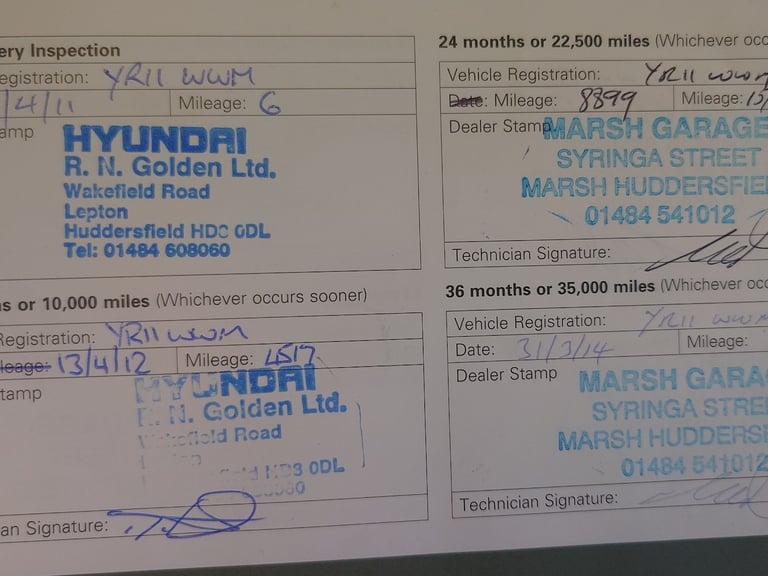 ery Inspection
egistration: YR11 WWM
/4/11 Mileage: 6
amp
HYUNDAI
R. N. Golden Ltd.
Wakefield Road
Lepton
Huddersfield HD8 0DL
Tel: 01484 608060
s or 10,000 miles (Whichever occurs sooner)
Registration: YR11 WWM
leage: 13/4/12 Mileage: 4517
tamp
HYUNDAI
R. N. Golden Ltd.
Wakefield Road
field HD8 0DL
ian Signature:
24 months or 22,500 miles (Whichever occ
Vehicle Registration: YR11 WWM
Date: Mileage: 8899 Mileage: 13/
Dealer Stamp
MARSH GARAGE
SYRINGA STREET
MARSH HUDDERSFIE
01484 541012
Technician Signature:
36 months or 35,000 miles (Whichever occ
Vehicle Registration: YR11 WWM
Date: 31/3/14 Mileage:
Dealer Stamp
MARSH GARA
SYRINGA STRE
MARSH HUDDERSF
01484 541012
Technician Signature: